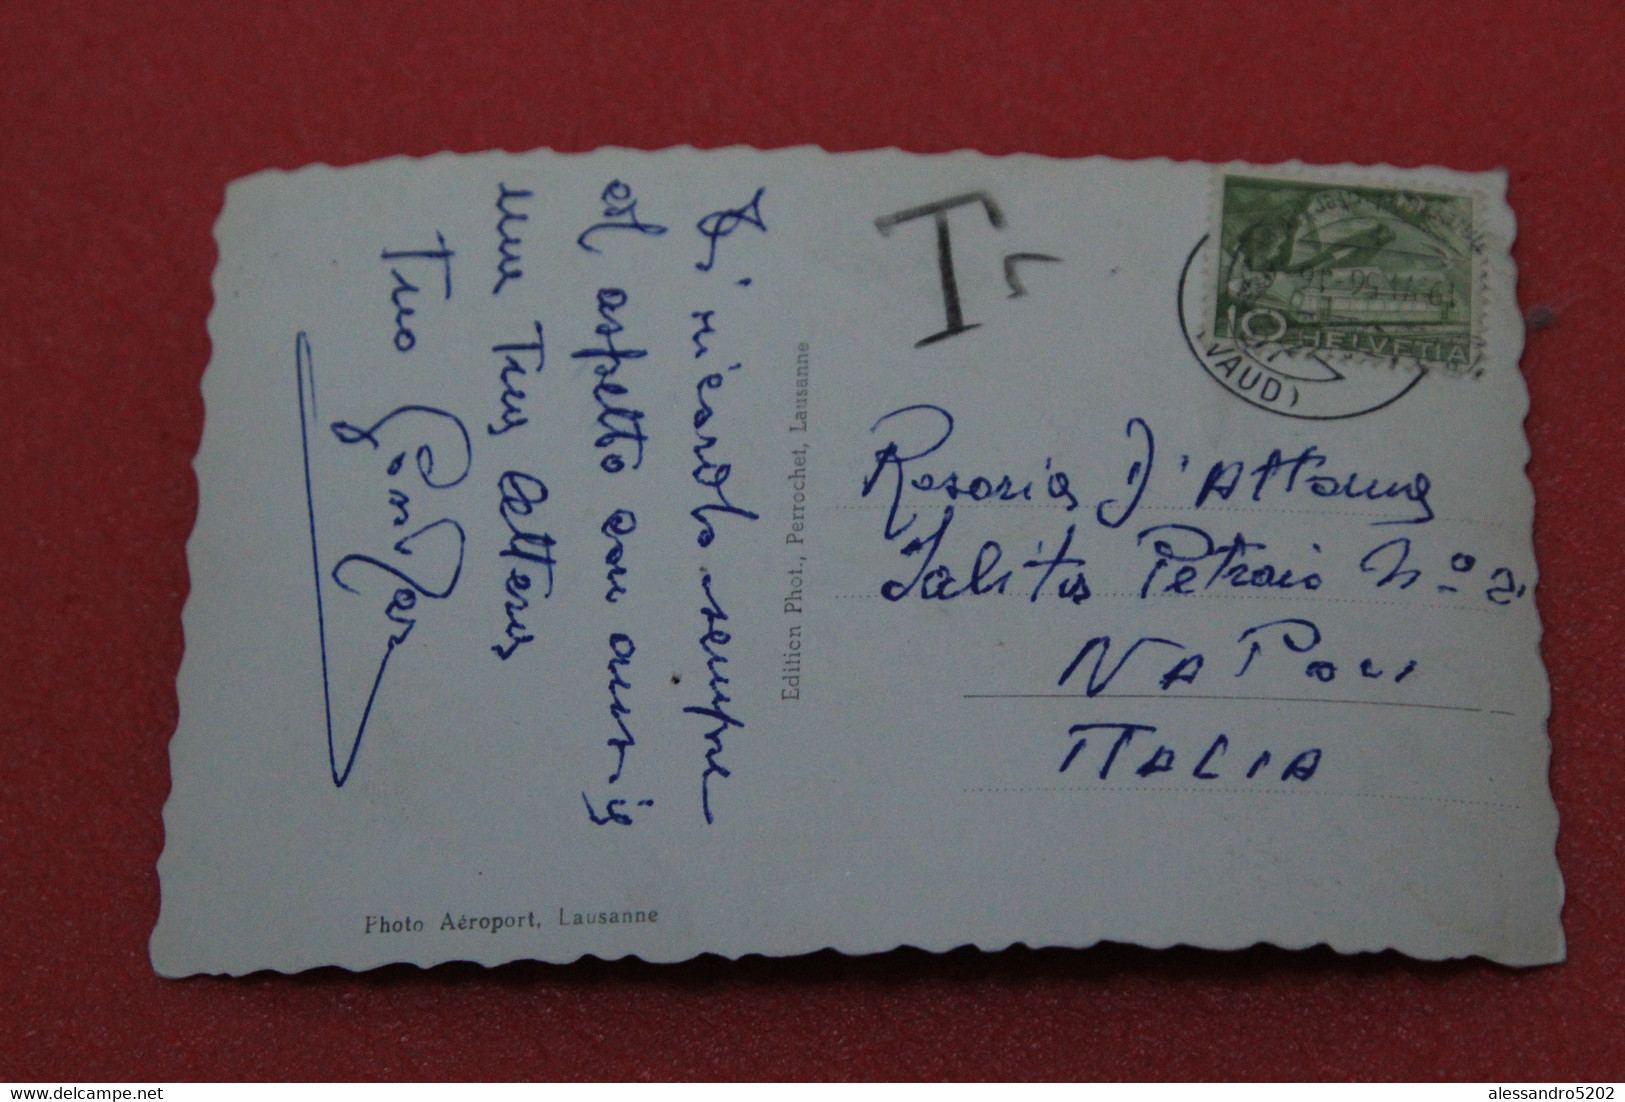 Ti ricordo sempre
ed aspetto con ansia
una Tua lettera
Tuo
Photo Aéroport, Lausanne
Edition Phot., Perrochet, Lausanne
T
19.VI.56
(VAUD)
10 HELVETIA
Rosaria D'Attoma
Salita Petraio N° 2
NAPOLI
ITALIA
alessandro5202